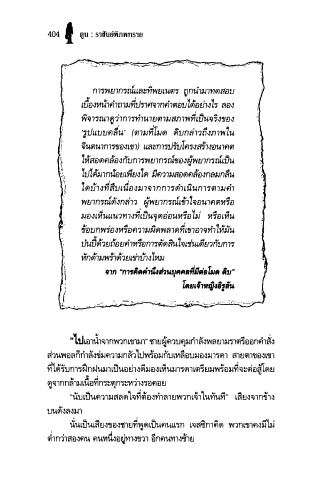 404 ดูน : ราชันย์พิภพทราย
การพยากรณ์และทิพยเนตร ถูกนำมาทดสอบ
เบื้องหน้าคำถามที่ปราศจากคำตอบได้อย่างไร ลอง
พิจารณาดูว่าการทำนายตามสภาพที่เป็นจริงของ
'รูปแบบคลื่น' (ตามที่โมด ดิบกล่าวถึงภาพใน
จินตนาการของเขา) และการปรับโครงสร้างอนาคต
ให้สอดคล้องกับการพยากรณ์ของผู้พยากรณ์เป็น
ไปได้มากน้อยเพียงใด มีความสอดคล้องกลมกลืน
ใดบ้างที่สืบเนื่องมาจากการดำเนินการตามคำ
พยากรณ์ดังกล่าว ผู้พยากรณ์เข้าใจอนาคตหรือ
มองเห็นแนวทางที่เป็นจุดอ่อนหรือไม่ หรือเห็น
ข้อบกพร่องหรือความผิดพลาดที่เขาอาจทำให้มัน
ปนปี้ด้วยถ้อยคำหรือการตัดสินใจเช่นเดียวกับการ
หักด้ามพร้าด้วยเข่าบ้างไหม
จาก "การคิดคำนึงส่วนบุคคลที่มีต่อโมด ดิบ"
โดยเจ้าหญิงอิรูลัน
"ไปเอาน้ำจากพวกเขามา" ชายผู้ควบคุมกำลังพลยามราตรีออกคำสั่ง
ส่วนพอลก็กำลังข่มความกลัวไปพร้อมกับเหลือบมองมารดา สายตาของเขา
ที่ได้รับการฝึกฝนมาเป็นอย่างดีมองเห็นมารดาเตรียมพร้อมที่จะต่อสู้โดย
ดูจากกล้ามเนื้อที่กระตุกระหว่างรอคอย
"นับเป็นความสลดใจที่ต้องทำลายพวกเจ้าในทันที" เสียงจากข้าง
บนดังลงมา
นั่นเป็นเสียงของชายที่พูดเป็นคนแรก เจสซิกาคิด พวกเขาคงมีไม่
ต่ำกว่าสองคน คนหนึ่งอยู่ทางขวา อีกคนทางซ้าย